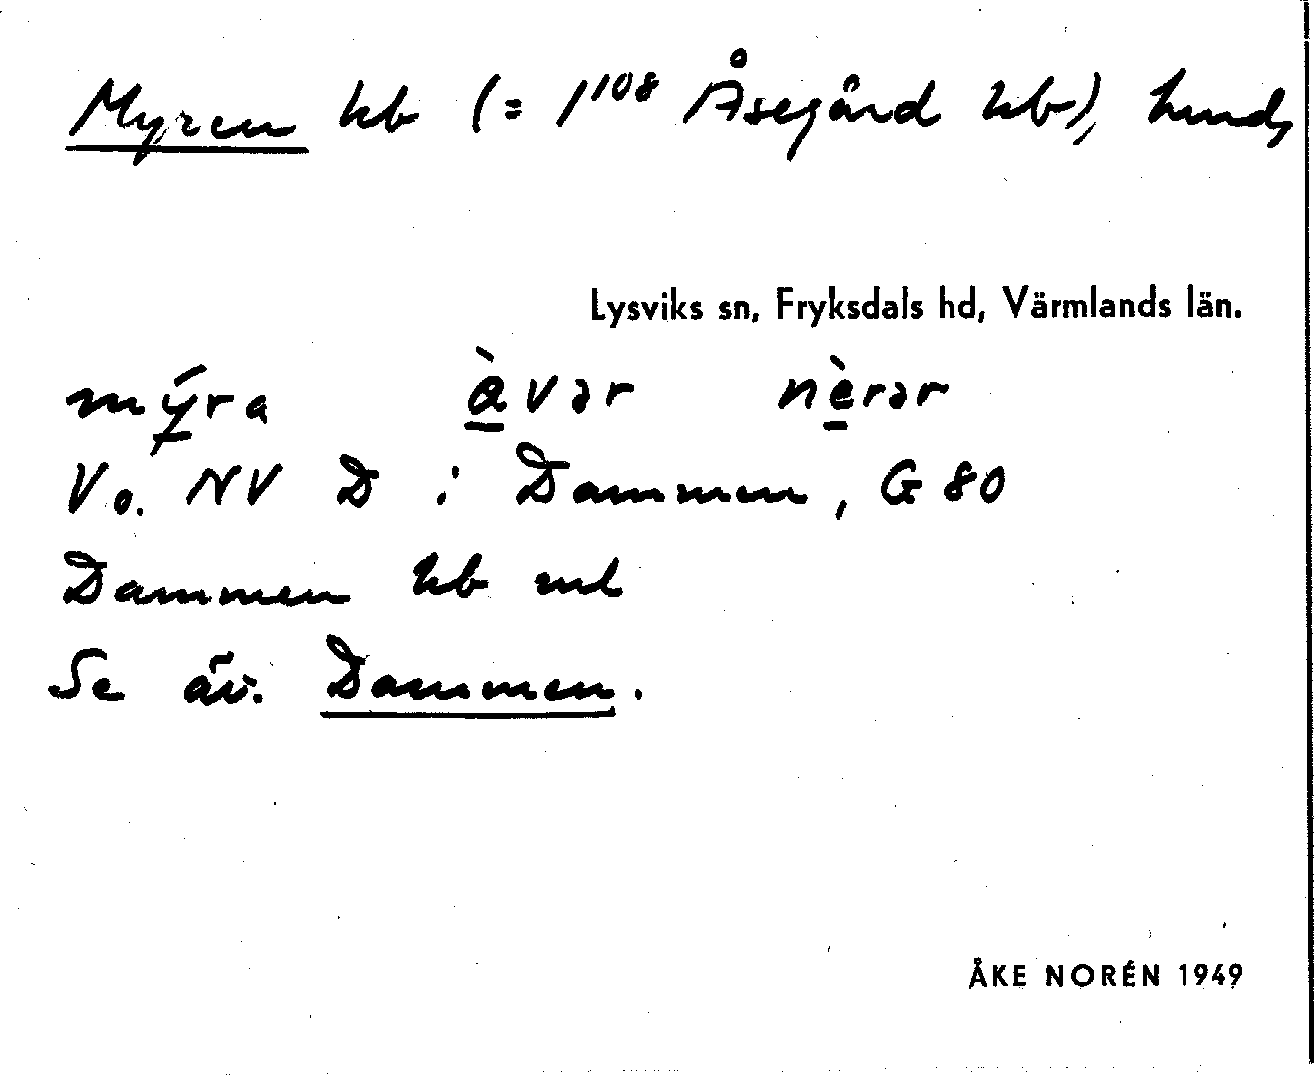 Myren hb (= 1¹⁰⁸ Åsegård hb), hmd,
Lysviks sn, Fryksdals hd, Värmlands län.
mýra àvər nèrər
Vo. NV D i Dammen, G 80
Dammen hb
Se äv. Dammen.
ÅKE NORÉN 1949